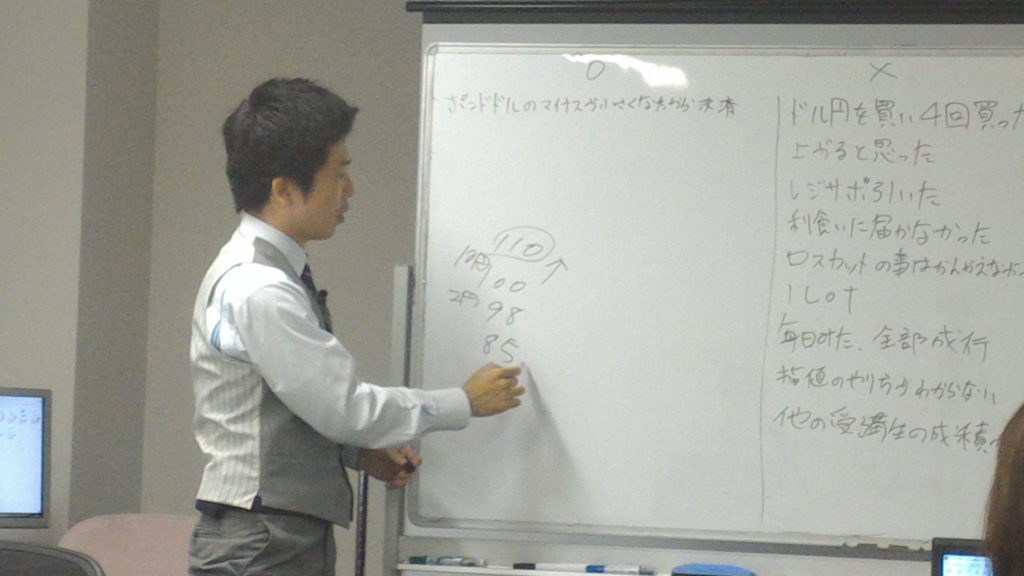 ○
ポンドドルのマイナスが小さくなったから決済
110
100
98
85
×
ドル円を買い4回買った
上がると思った
レジサポ引いた
利食いに届かなかった
ロスカットの事はかんがえなか
1Lot
毎日みた、全部成行
指値のやり方がわからない
他の受講生の成積